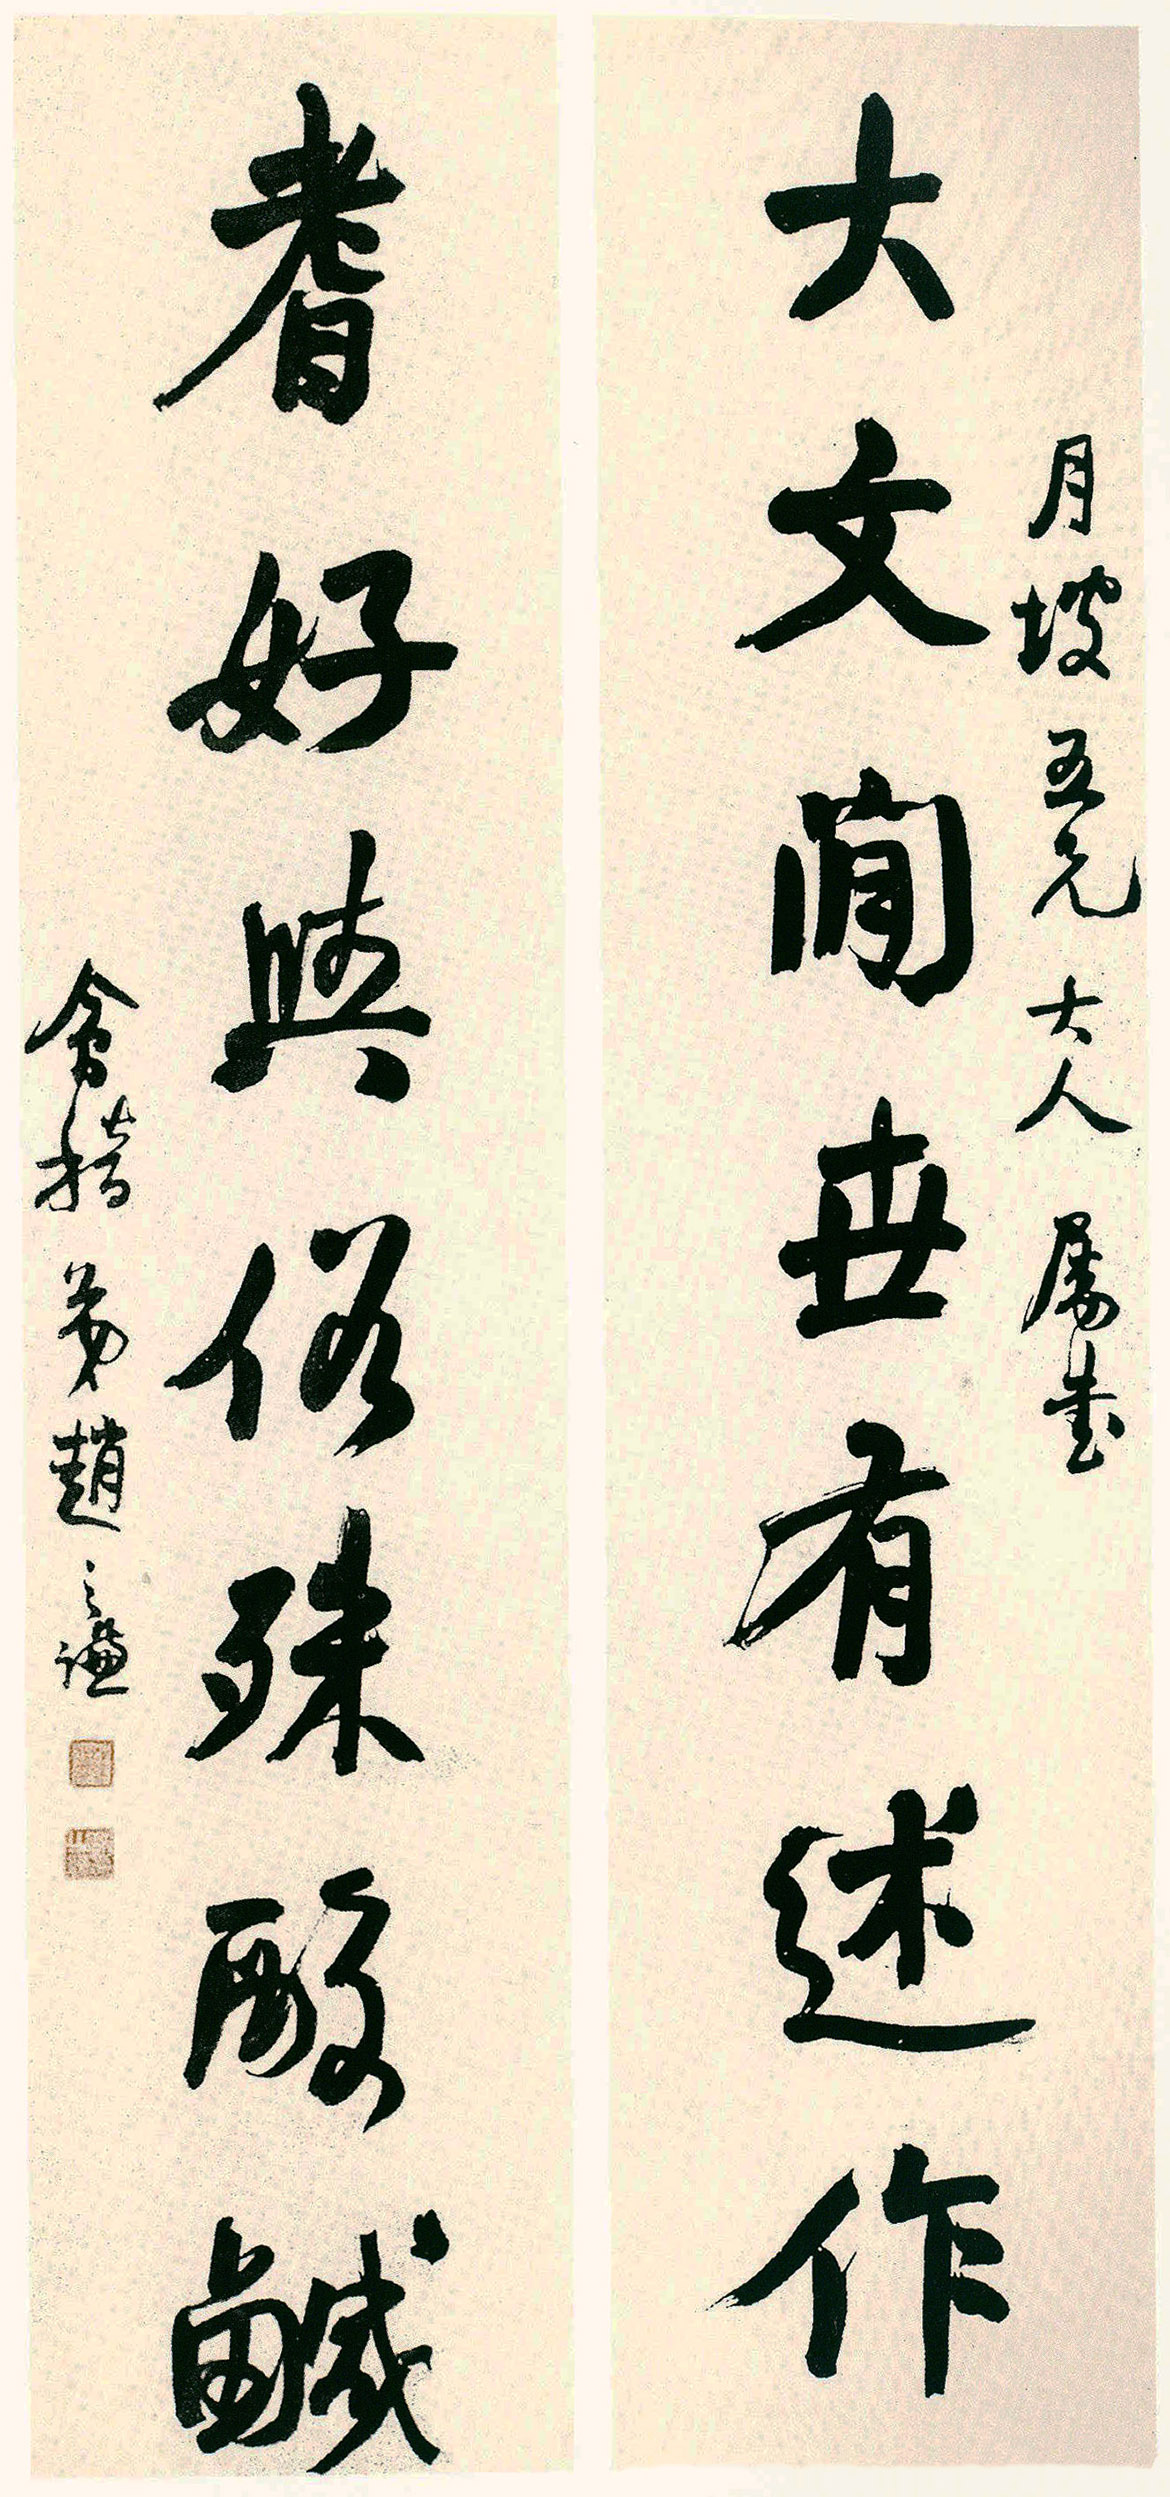 月坡五兄大人属書
大文閒世有述作
耆好與俗殊酸鹹
會稽弟趙之謙